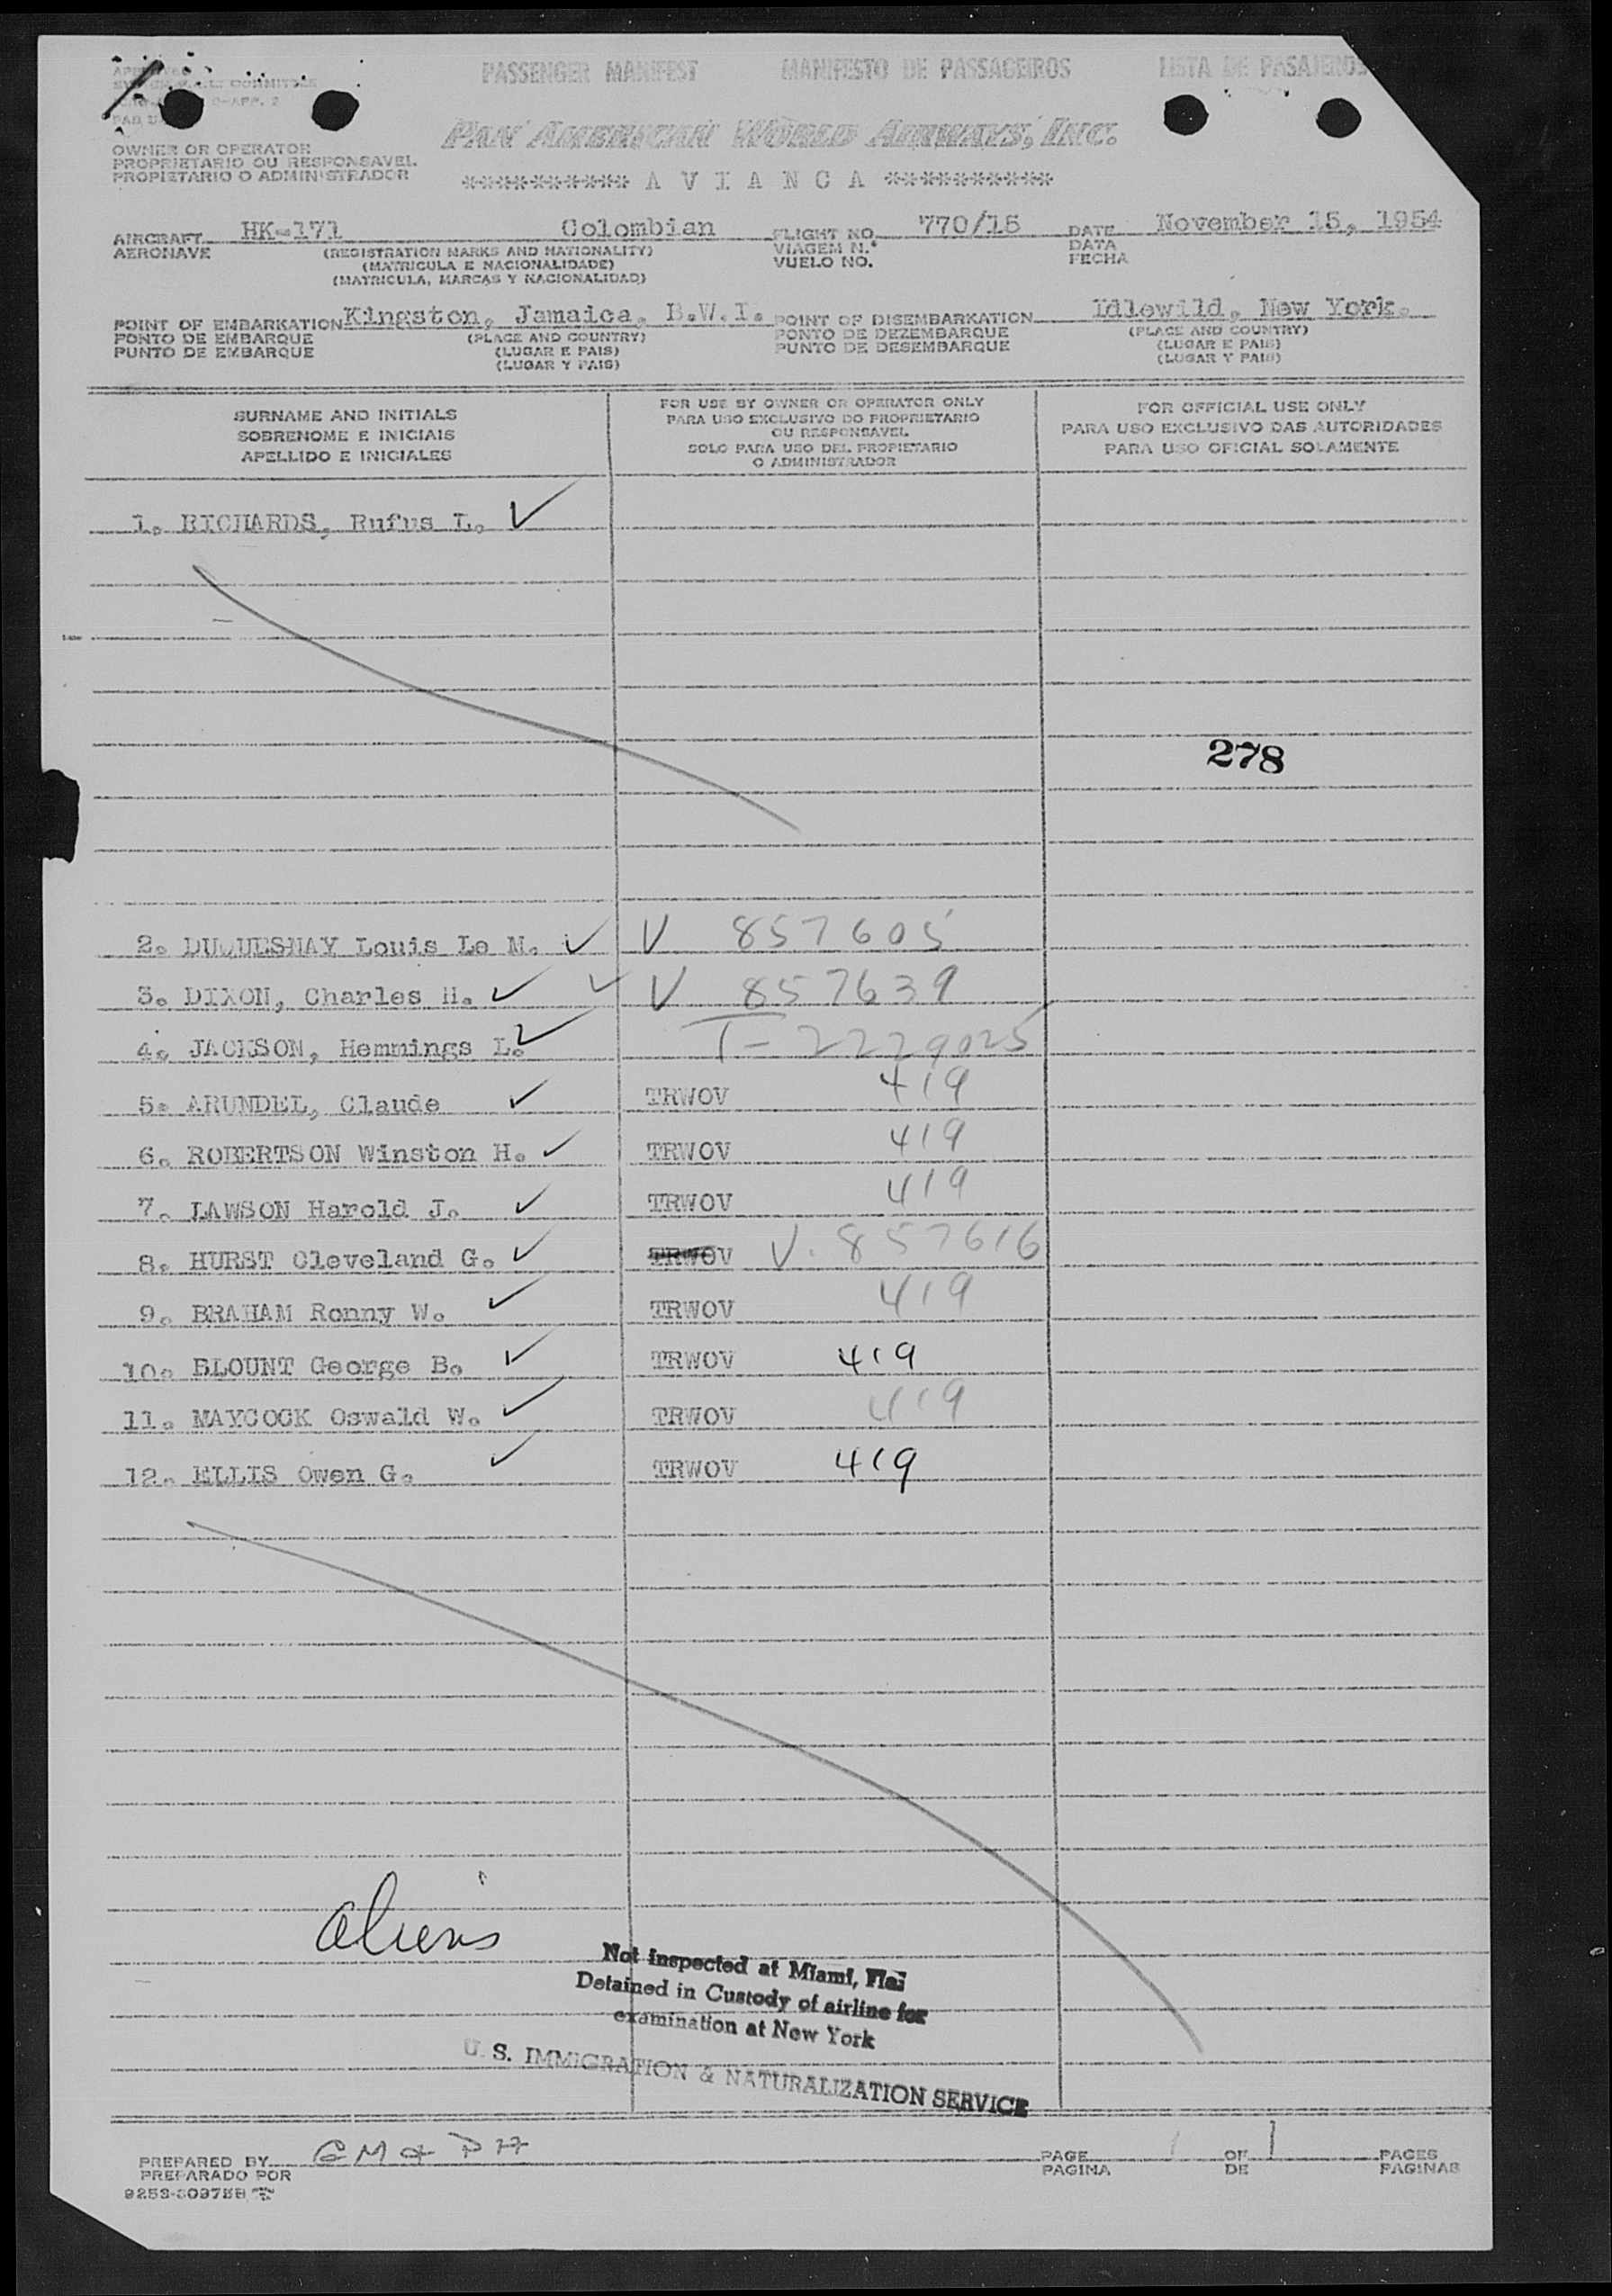 PASSENGER MANIFEST MANIFESTO DE PASSAGEIROS LISTA DE PASAJEROS
PAN AMERICAN WORLD AIRWAYS, INC.
OWNER OR OPERATOR
PROPRIETARIO OU RESPONSAVEL
PROPIETARIO O ADMINISTRADOR
********** A V I A N C A **********
AIRCRAFT HK-171 Colombian FLIGHT NO. 770/15 DATE November 15, 1954
AERONAVE (REGISTRATION MARKS AND NATIONALITY) VIAGEM N.º DATA
(MATRICULA E NACIONALIDADE) VUELO NO. FECHA
(MATRICULA, MARCAS Y NACIONALIDAD)
POINT OF EMBARKATION Kingston, Jamaica, B.W.I. POINT OF DISEMBARKATION Idlewild, New York.
PONTO DE EMBARQUE (PLACE AND COUNTRY) PONTO DE DEZEMBARQUE (PLACE AND COUNTRY)
PUNTO DE EMBARQUE (LUGAR E PAIS) PUNTO DE DESEMBARQUE (LUGAR E PAIS)
(LUGAR Y PAIS) (LUGAR Y PAIS)
SURNAME AND INITIALS
SOBRENOME E INICIAIS
APELLIDO E INICIALES
FOR USE BY OWNER OR OPERATOR ONLY
PARA USO EXCLUSIVO DO PROPRIETARIO
OU RESPONSAVEL
SOLO PARA USO DEL PROPIETARIO
O ADMINISTRADOR
FOR OFFICIAL USE ONLY
PARA USO EXCLUSIVO DAS AUTORIDADES
PARA USO OFICIAL SOLAMENTE
1. RICHARDS, Rufus L. ✓
278
2. DUQUESNAY Louis Le M. ✓ V 857605
3. DIXON, Charles H. ✓ ✓ V 857639
4. JACKSON, Hemmings L. ✓ T-2229025
5. ARUNDEL, Claude ✓ TRWOV 419
6. ROBERTSON Winston H. ✓ TRWOV 419
7. LAWSON Harold J. ✓ TRWOV 419
8. HURST Cleveland G. ✓ TRWOV V. 857616
9. BRAHAM Ronny W. ✓ TRWOV 419
10. BLOUNT George B. ✓ TRWOV 419
11. MAYCOCK Oswald W. ✓ TRWOV 419
12. ELLIS Owen G. ✓ TRWOV 419
aliens
Not Inspected at Miami, Fla.
Detained in Custody of airline for
examination at New York
U. S. IMMIGRATION & NATURALIZATION SERVICE
PREPARED BY PAGE 1 OF 1 PAGES
PREPARADO POR PAGINA DE PAGINAS